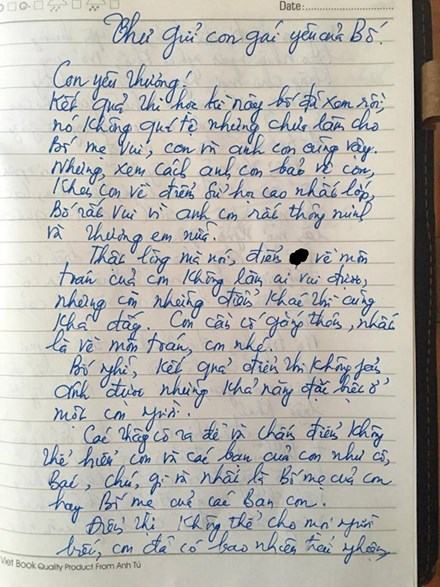 Date:
Thư gửi con gái yêu của Bố.
Con yêu thương!
Kết quả thi học kì này bố đã xem rồi,
nó không quá tệ nhưng chưa làm cho
Bố mẹ vui, con và anh con cũng vậy.
Nhưng, xem cách anh con bảo vệ con,
khen con về điểm Sử học cao nhất lớp,
Bố rất vui vì anh con rất thông minh
và thương em nữa.
Thật lòng mà nói, điểm về môn
toán của con không làm ai vui được,
nhưng còn những điểm khác thì cũng
khá đấy. Con cần cố gắng thêm, nhất
là về môn toán, con nhé.
Bố nghĩ, kết quả điểm thi không phản
ánh được những khả năng đặc biệt ở
một con người.
Các thầy cô ra đề và chấm điểm không
thể hiểu con và các bạn của con như cô,
Bác, chú, gì và nhất là Bố mẹ của con
hay Bố mẹ của các Bạn con.
Điểm thi không thể cho mọi người
biết, con đã có bao nhiêu trải nghiệm,
Viet Book Quality Product From Anh Tú